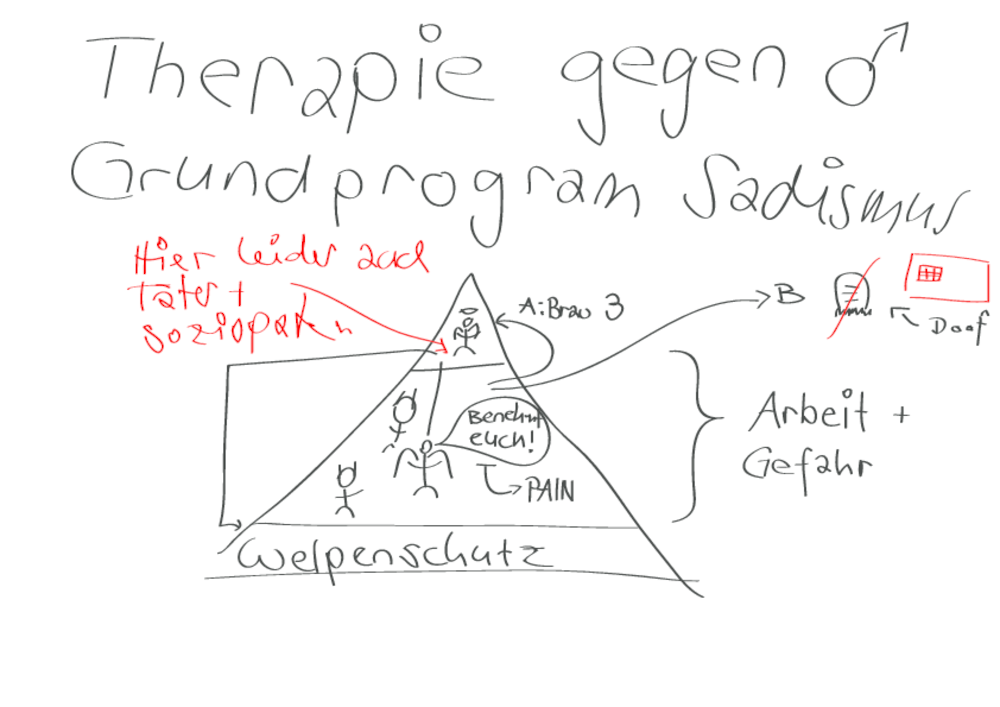 Therapie gegen ♂
Grundprogram Sadismus
Hier leider auch
Täter +
Soziopaten
A: Brav 3
B
Doof
Benehmt
euch!
PAIN
Arbeit +
Gefahr
Welpenschutz